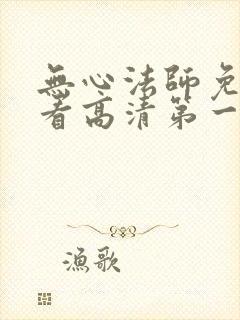 無心法師免
看高清第一
漁歌